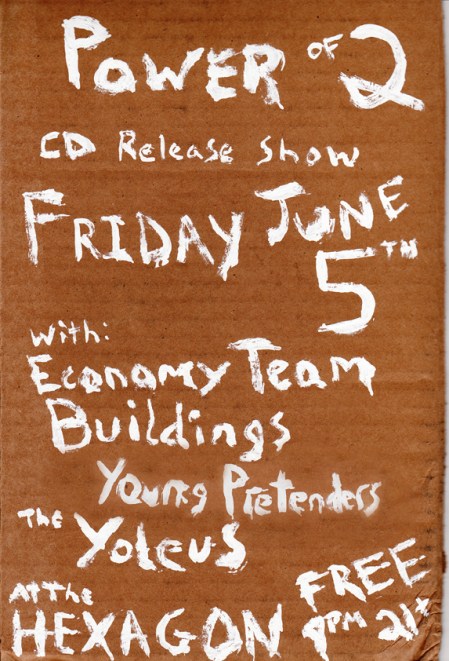 Power OF 2
CD Release Show
FRIDAY JUNE
5TH
with:
Economy Team
Buildings
Young Pretenders
The Yoleus
At The FREE
HEXAGON 9PM 21+